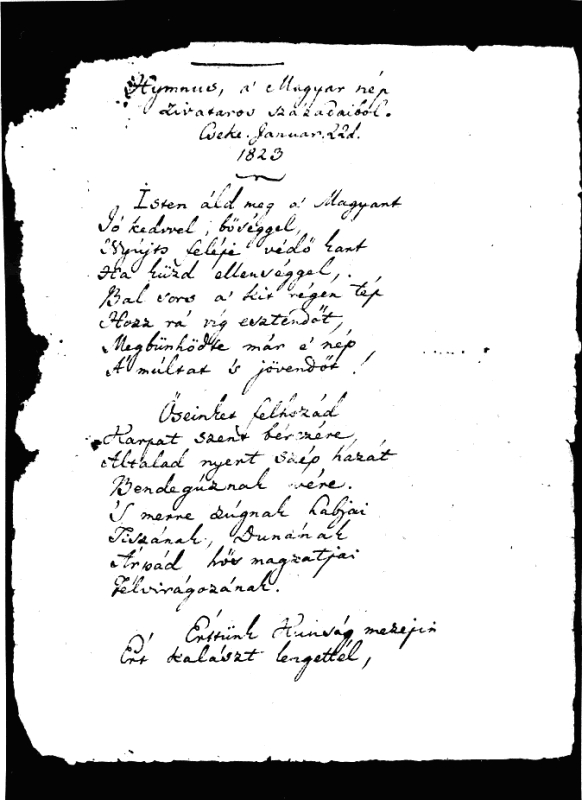 Hymnus, a' Magyar nép
zivataros századaiból.
Cseke. Januar. 22d.
1823
Isten áld meg a' Magyart
Jó kedvvel, bőséggel,
Nyújts feléje védő kart
Ha küzd ellenséggel,
Bal sors a' kit régen tép
Hozz rá víg esztendőt,
Megbünhödte már e' nép
A' múltat 's jövendőt!
Őseinket felhozád
Karpat szent bérczére,
Általad nyert szép hazát
Bendegúznak vére.
'S merre zúgnak habjai
Tiszának, Dunának
Árpád hős magzatjai
Felvirágozának.
Értünk Kunság mezején
Ért kalászt lengettél,